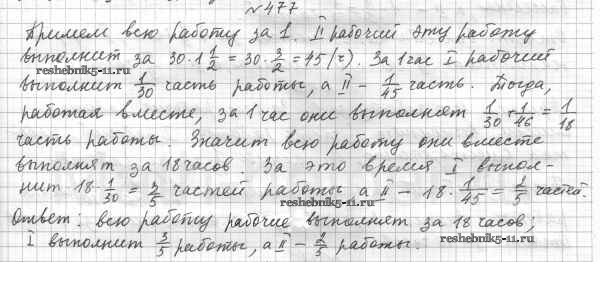 №477
Примем всю работу за 1. II рабочий эту работу
выполнит за 30·1 1/2 = 30·3/2 = 45 (ч). За 1 час I рабочий
reshebnik5-11.ru
выполнит 1/30 часть работы, а II – 1/45 часть. Тогда,
работая вместе, за 1 час они выполнят 1/30 + 1/46 = 1/18
часть работы. Значит всю работу они вместе
выполнят за 18 часов. За это время I выпол-
нит 18·1/30 = 3/5 частей работы а II – 18·1/45 = 2/5 частей.
reshebnik5-11.ru
Ответ: всю работу рабочие выполнят за 18 часов;
I выполнит 3/5 работы, а II – 2/5 работы.
reshebnik5-11.ru